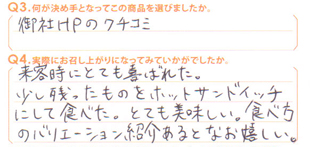 Q3.何が決め手となってこの商品を選びましたか。
御社HPのクチコミ
Q4.実際にお召し上がりになってみていかがでしたか。
来客時にとても喜ばれた。
少し残ったものをホットサンドイッチ
にして食べた。とても美味しい。食べ方
のバリエーション紹介あるとなお嬉しい。